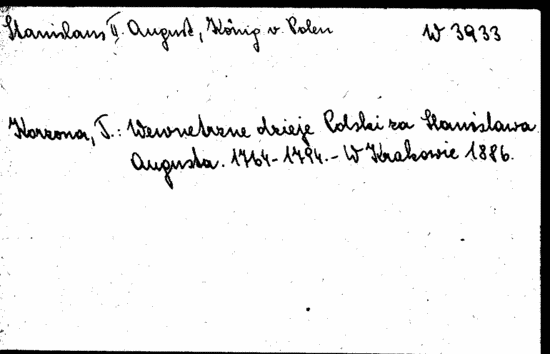 Stanislaus II. August, König v. Polen W 3933
Korzona, T.: Wewnetrzne dzieje Polski za Stanisława
Augusta. 1764-1794.- W Krakowie 1886.